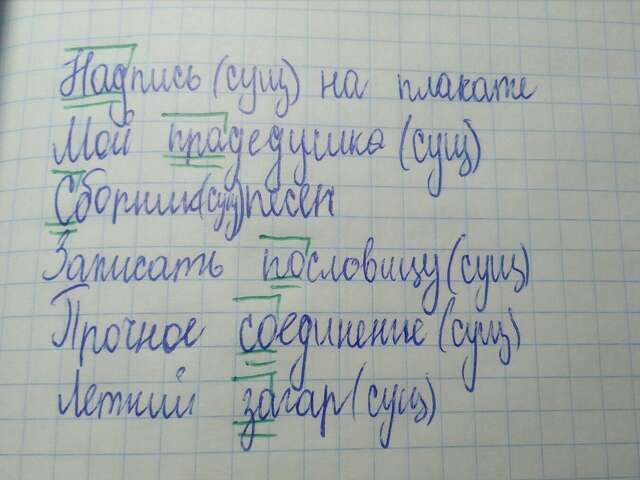 Надпись (сущ) на плакате
Мой прадедушка (сущ)
Сборник (сущ) песен
Записать пословицу (сущ)
Прочное соединение (сущ)
Летний загар (сущ)